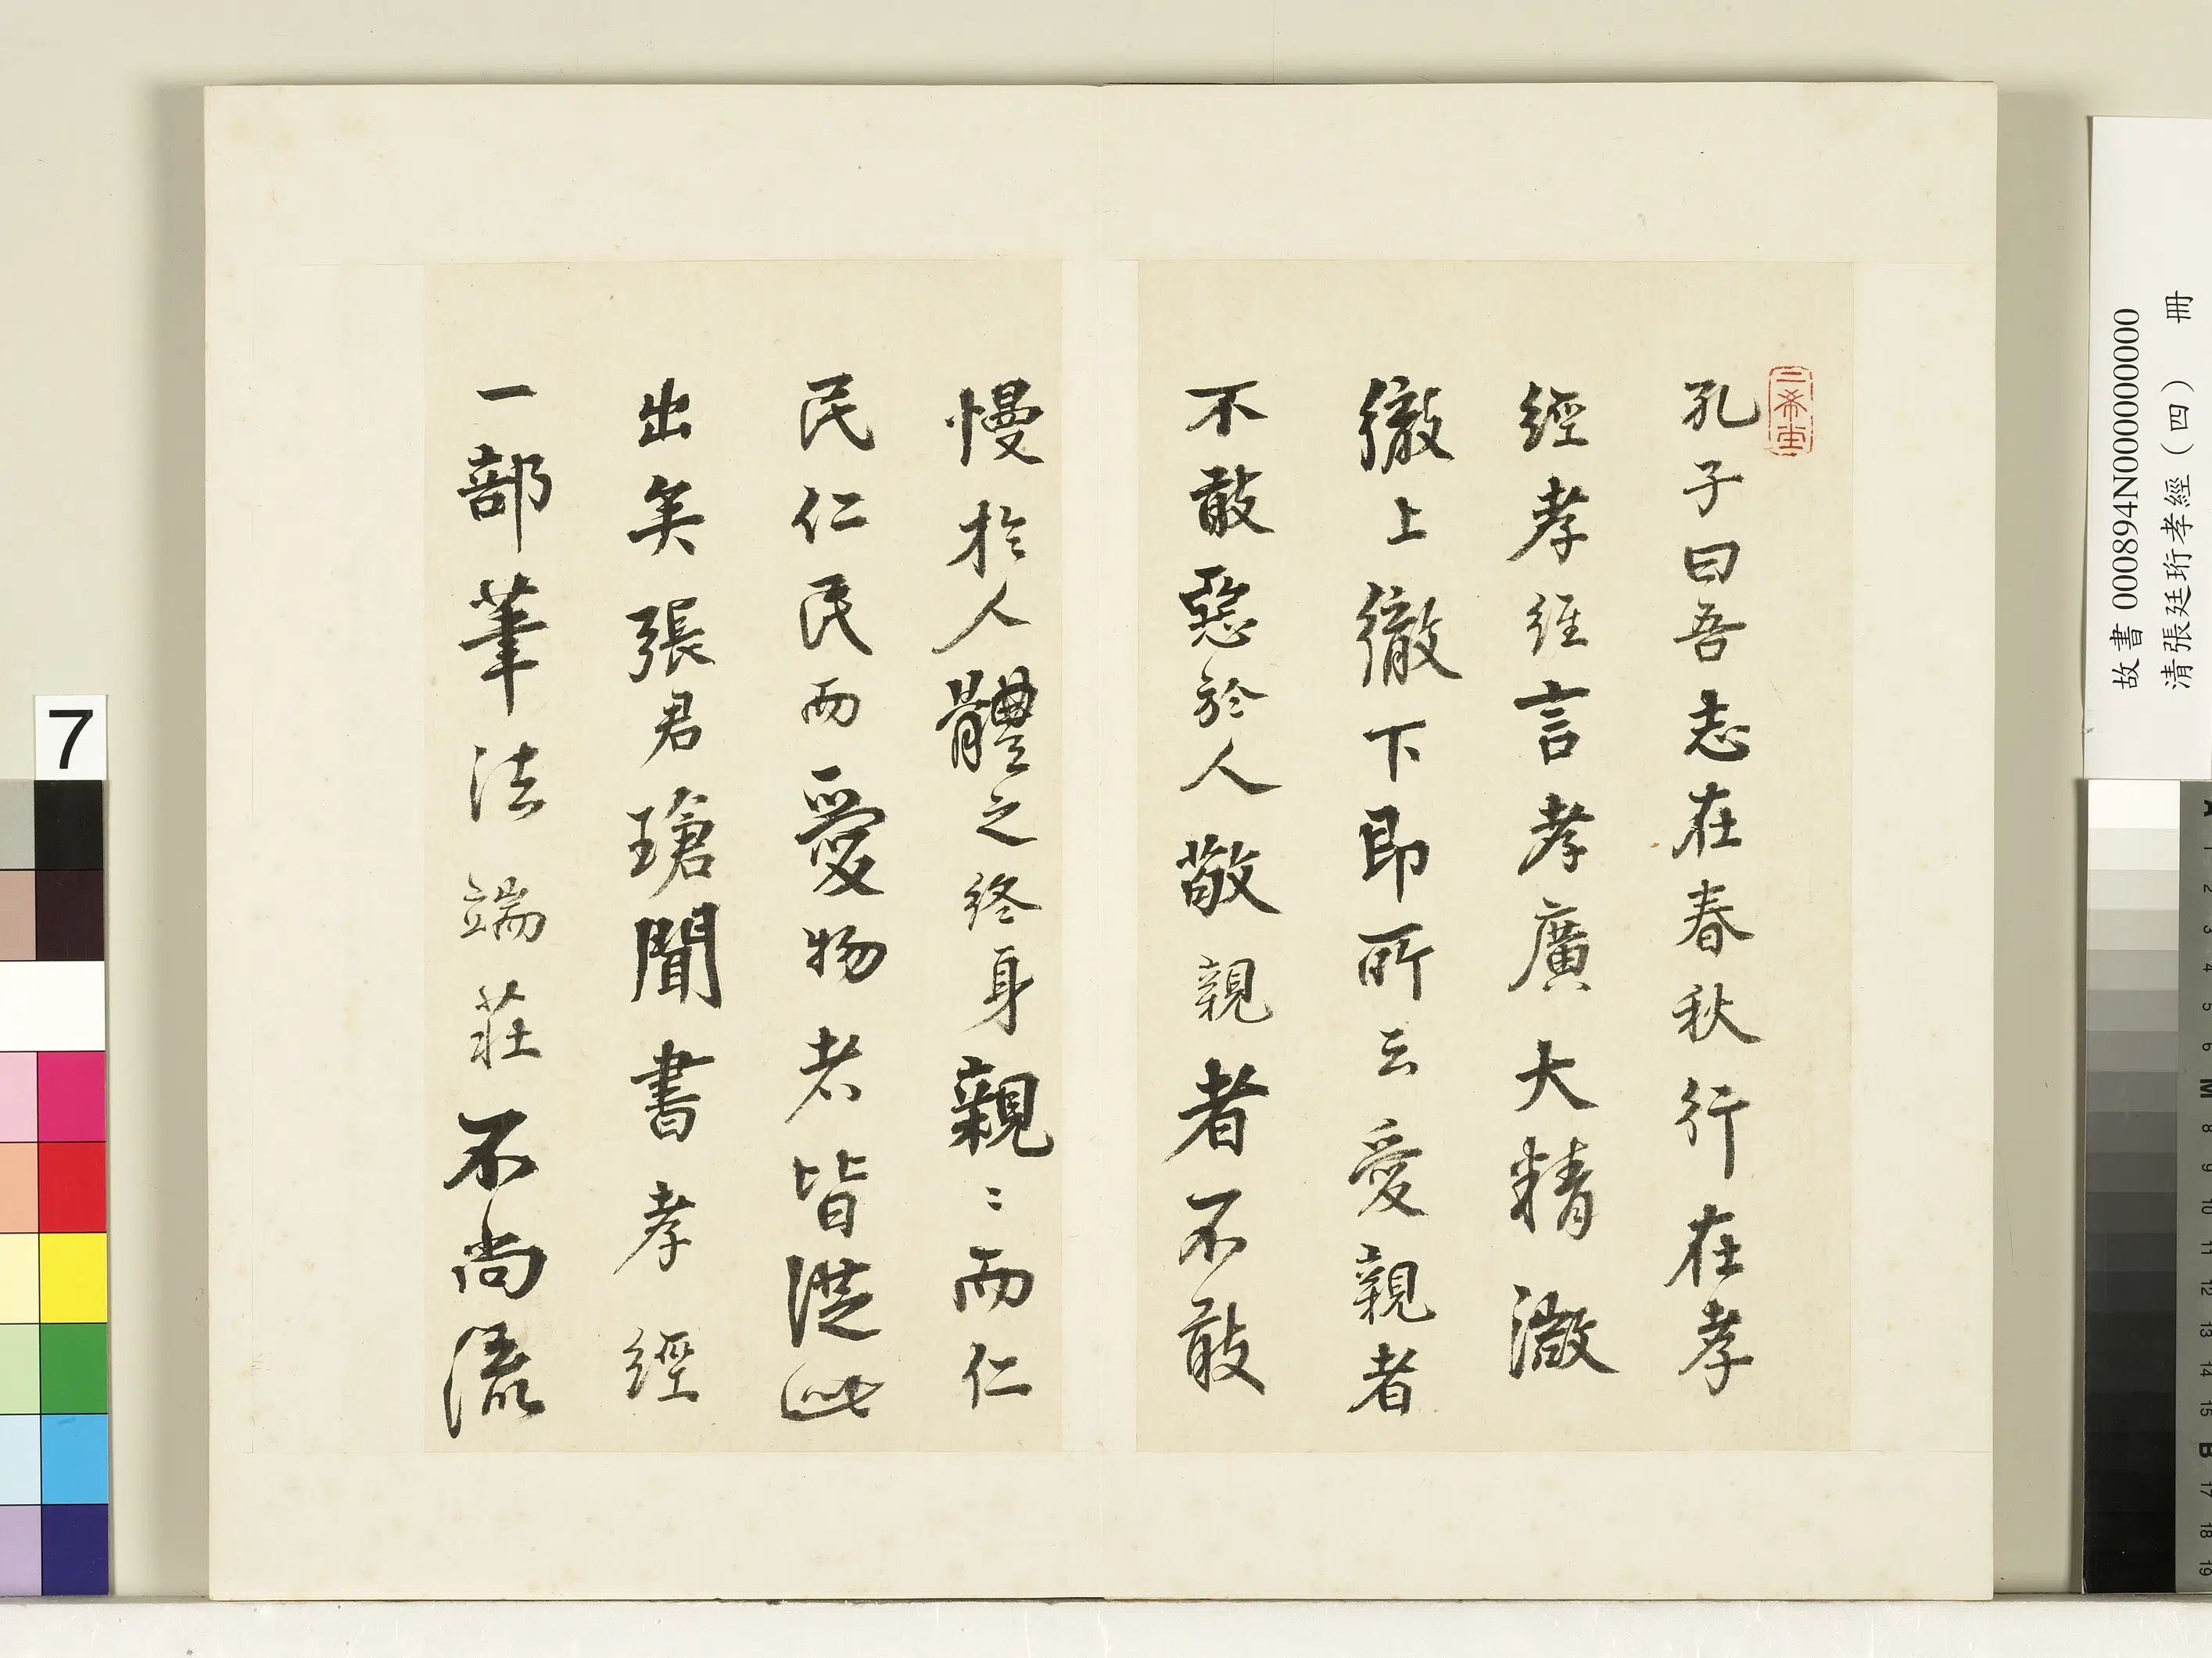 孔子曰吾志在春秋行在孝
經孝經言孝廣大精微
徹上徹下即所云愛親者
不敢惡於人敬親者不敢
慢於人體之終身親〻而仁
民仁民而愛物者皆從此
出矣張君瑲聞書孝經
一部筆法端莊不尚流
三希堂
故書 000894N000000000
清張廷珩孝經（四） 冊
7